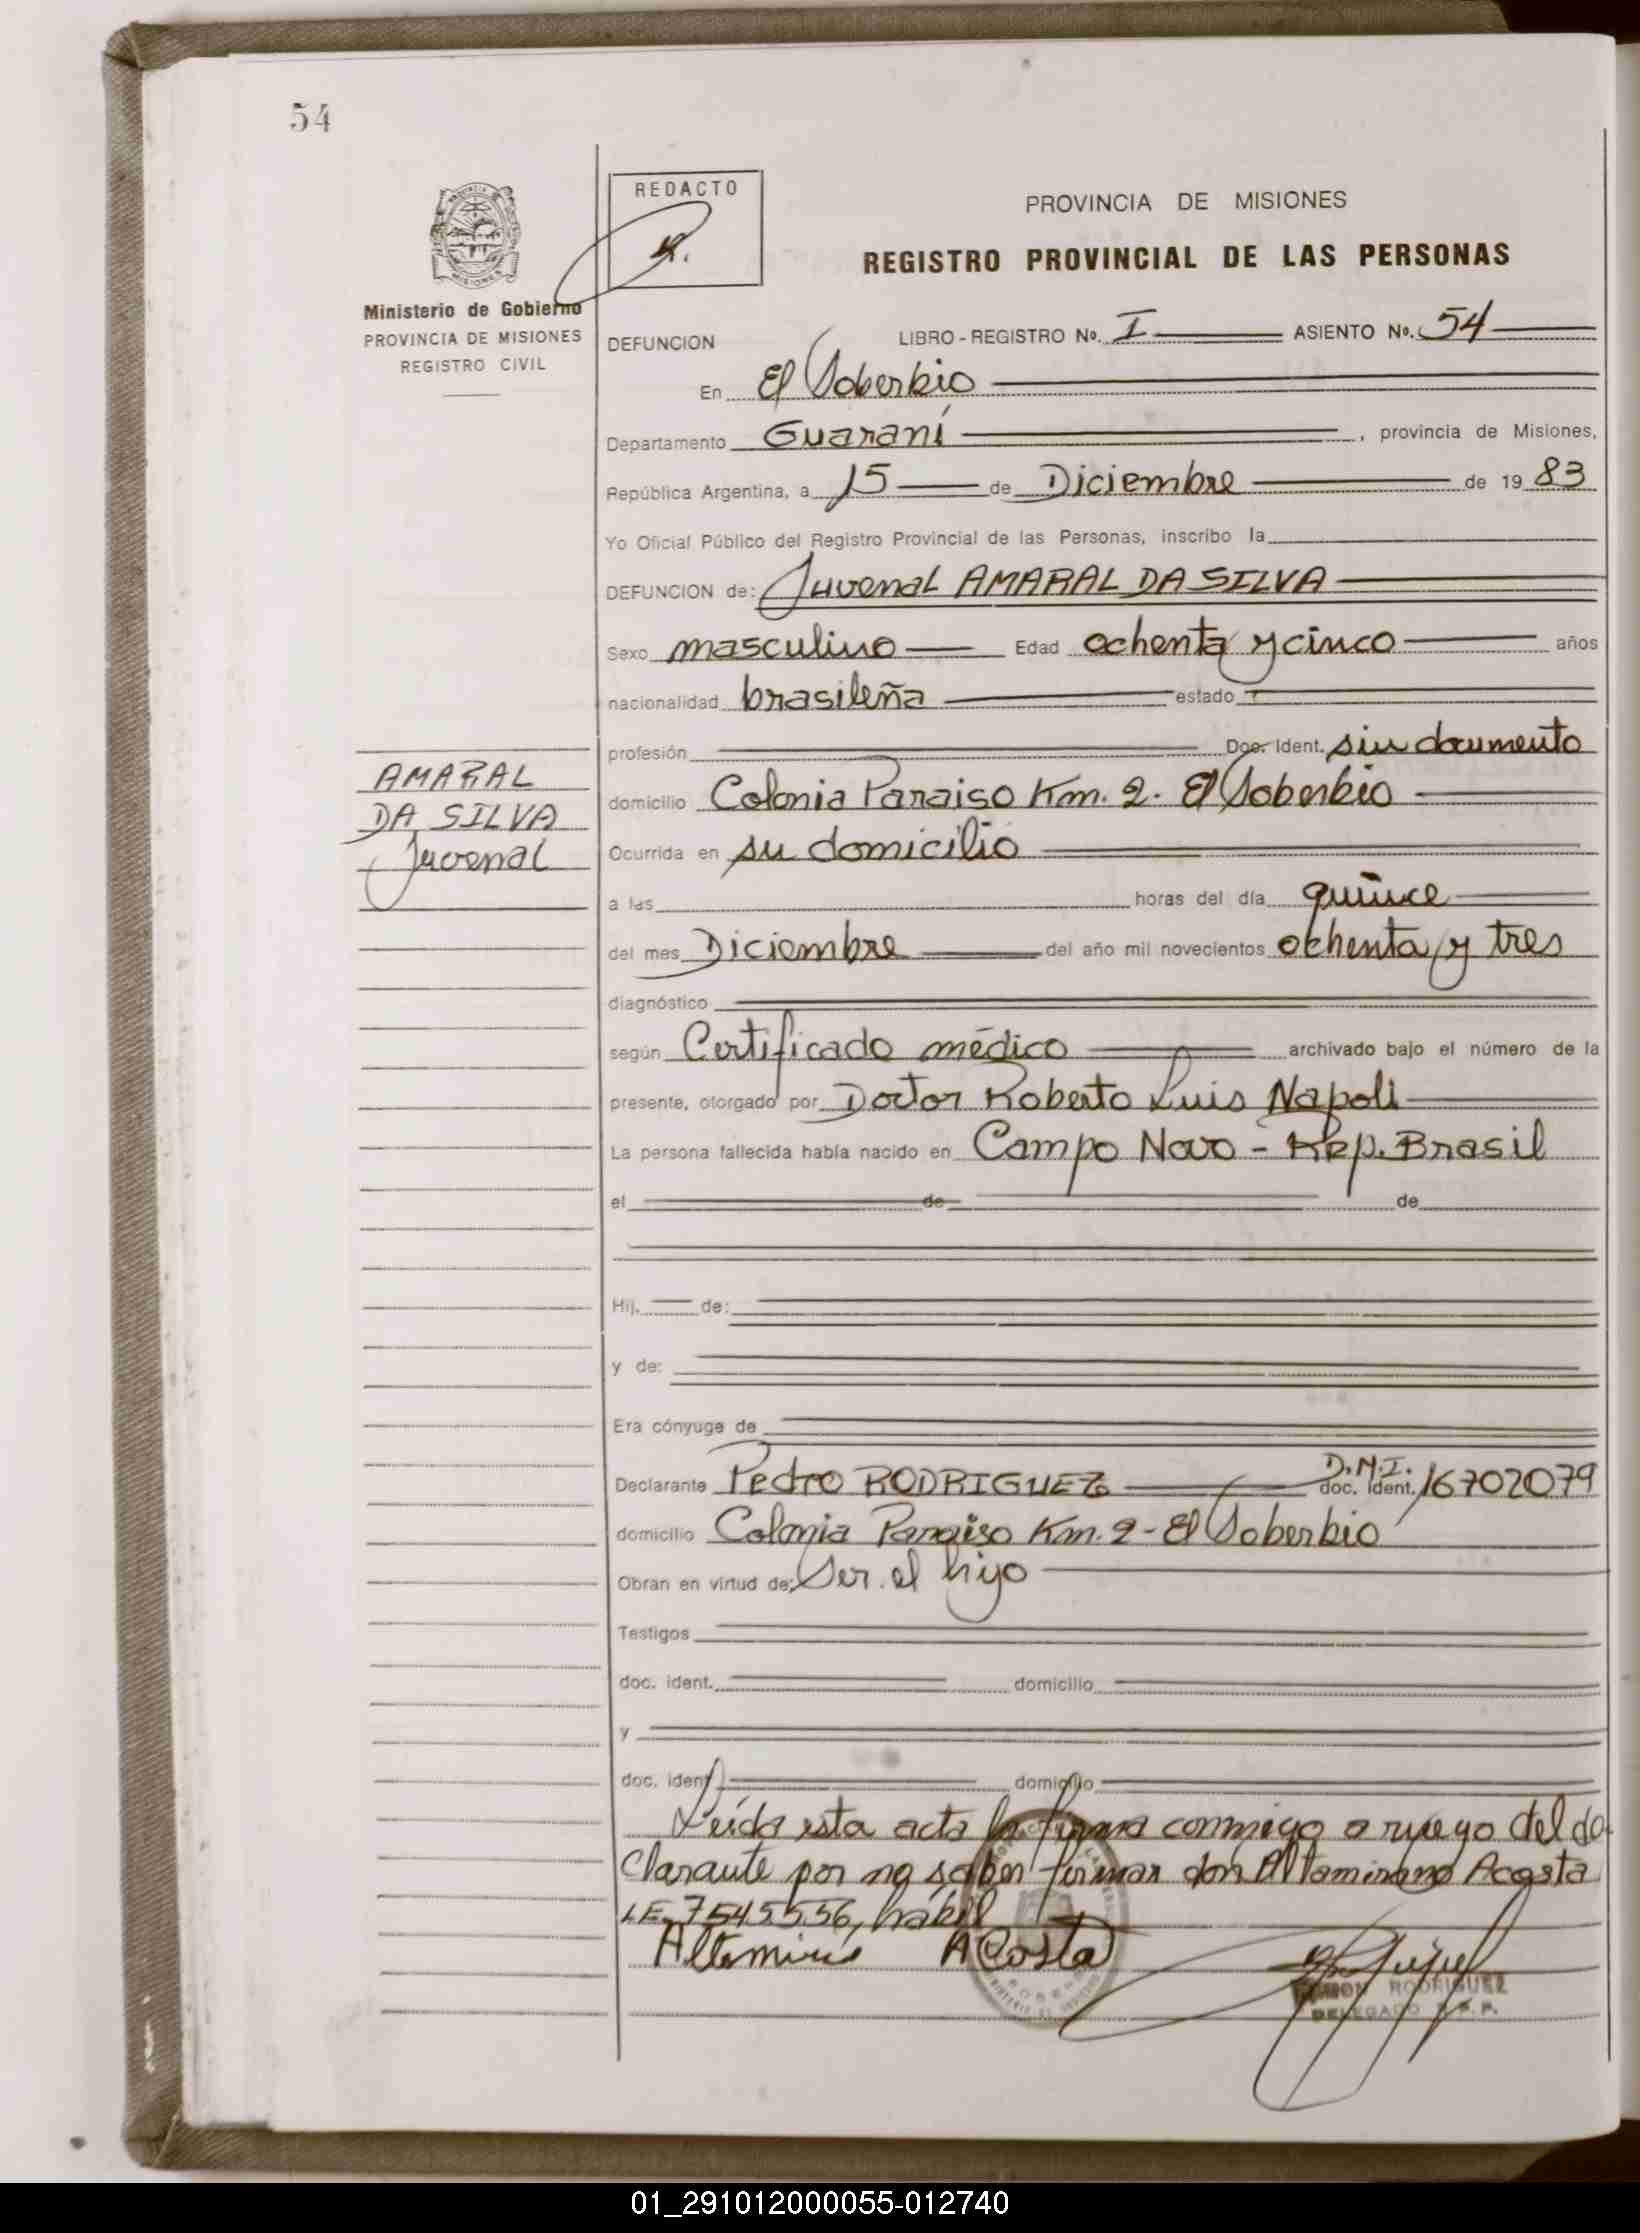 54
REDACTO
PROVINCIA DE MISIONES
REGISTRO PROVINCIAL DE LAS PERSONAS
Ministerio de Gobierno
PROVINCIA DE MISIONES
REGISTRO CIVIL
DEFUNCION LIBRO - REGISTRO No. I ASIENTO No. 54
En El Soberbio
Departamento Guaraní, provincia de Misiones,
República Argentina, a 15 de Diciembre de 1983
Yo Oficial Público del Registro Provincial de las Personas, inscribo la
DEFUNCION de: Juvenal AMARAL DA SILVA
Sexo masculino Edad ochenta y cinco años
nacionalidad brasileña estado
profesión Doc. Ident. sin documento
AMARAL
DA SILVA
Juvenal
domicilio Colonia Paraiso Km. 2. El Soberbio
Ocurrida en su domicilio
a las horas del día quince
del mes Diciembre del año mil novecientos ochenta y tres
diagnóstico
según Certificado médico archivado bajo el número de la
presente, otorgado por Doctor Roberto Luis Napoli
La persona fallecida había nacido en Campo Novo - Rep. Brasil
el de de
Hij. de:
y de:
Era cónyuge de
Declarante Pedro RODRIGUEZ D.N.I. doc. ident. 16702079
domicilio Colonia Paraiso Km. 2 - El Soberbio
Obran en virtud de; Ser el hijo
Testigos
doc. ident. domicilio
y
doc. ident. domicilio
Leída esta acta la firma conmigo a ruego del de
clarante por no saber firmar don Altamirano Acosta
L.E. 7545556, hábil
Acosta
RAMON RODRIGUEZ
DELEGADO R.P.P.
01_291012000055-012740